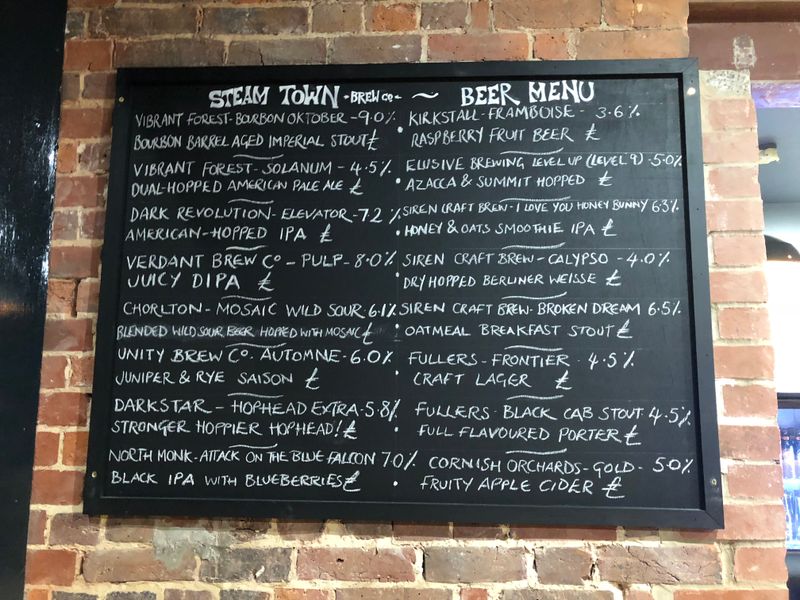 STEAM TOWN -BREW CO- ~ BEER MENU
VIBRANT FOREST-BOURBON OKTOBER - 9.0%
BOURBON BARREL AGED IMPERIAL STOUT £
VIBRANT FOREST - SOLANUM - 4.5%
DUAL-HOPPED AMERICAN PALE ALE £
DARK REVOLUTION - ELEVATOR - 7.2 %
AMERICAN-HOPPED IPA £
VERDANT BREW CO - PULP - 8.0%
JUICY DIPA £
CHORLTON - MOSAIC WILD SOUR 6.1%
BLENDED WILD SOUR BEER HOPPED WITH MOSAIC £
UNITY BREW CO. AUTOMNE - 6.0%
JUNIPER & RYE SAISON £
DARKSTAR - HOPHEAD EXTRA - 5.8%
STRONGER HOPPIER HOPHEAD! £
NORTH MONK - ATTACK ON THE BLUE FALCON 7.0%
BLACK IPA WITH BLUEBERRIES £
KIRKSTALL - FRAMBOISE - 3.6%
RASPBERRY FRUIT BEER £
ELUSIVE BREWING LEVEL UP (LEVEL 9) 5.0%
AZACCA & SUMMIT HOPPED £
SIREN CRAFT BREW - I LOVE YOU HONEY BUNNY 6.3%
HONEY & OATS SMOOTHIE IPA £
SIREN CRAFT BREW - CALYPSO - 4.0%
DRY HOPPED BERLINER WEISSE £
SIREN CRAFT BREW - BROKEN DREAM 6.5%
OATMEAL BREAKFAST STOUT £
FULLERS - FRONTIER - 4.5%
CRAFT LAGER £
FULLERS - BLACK CAB STOUT 4.5%
FULL FLAVOURED PORTER £
CORNISH ORCHARDS - GOLD - 5.0%
FRUITY APPLE CIDER £